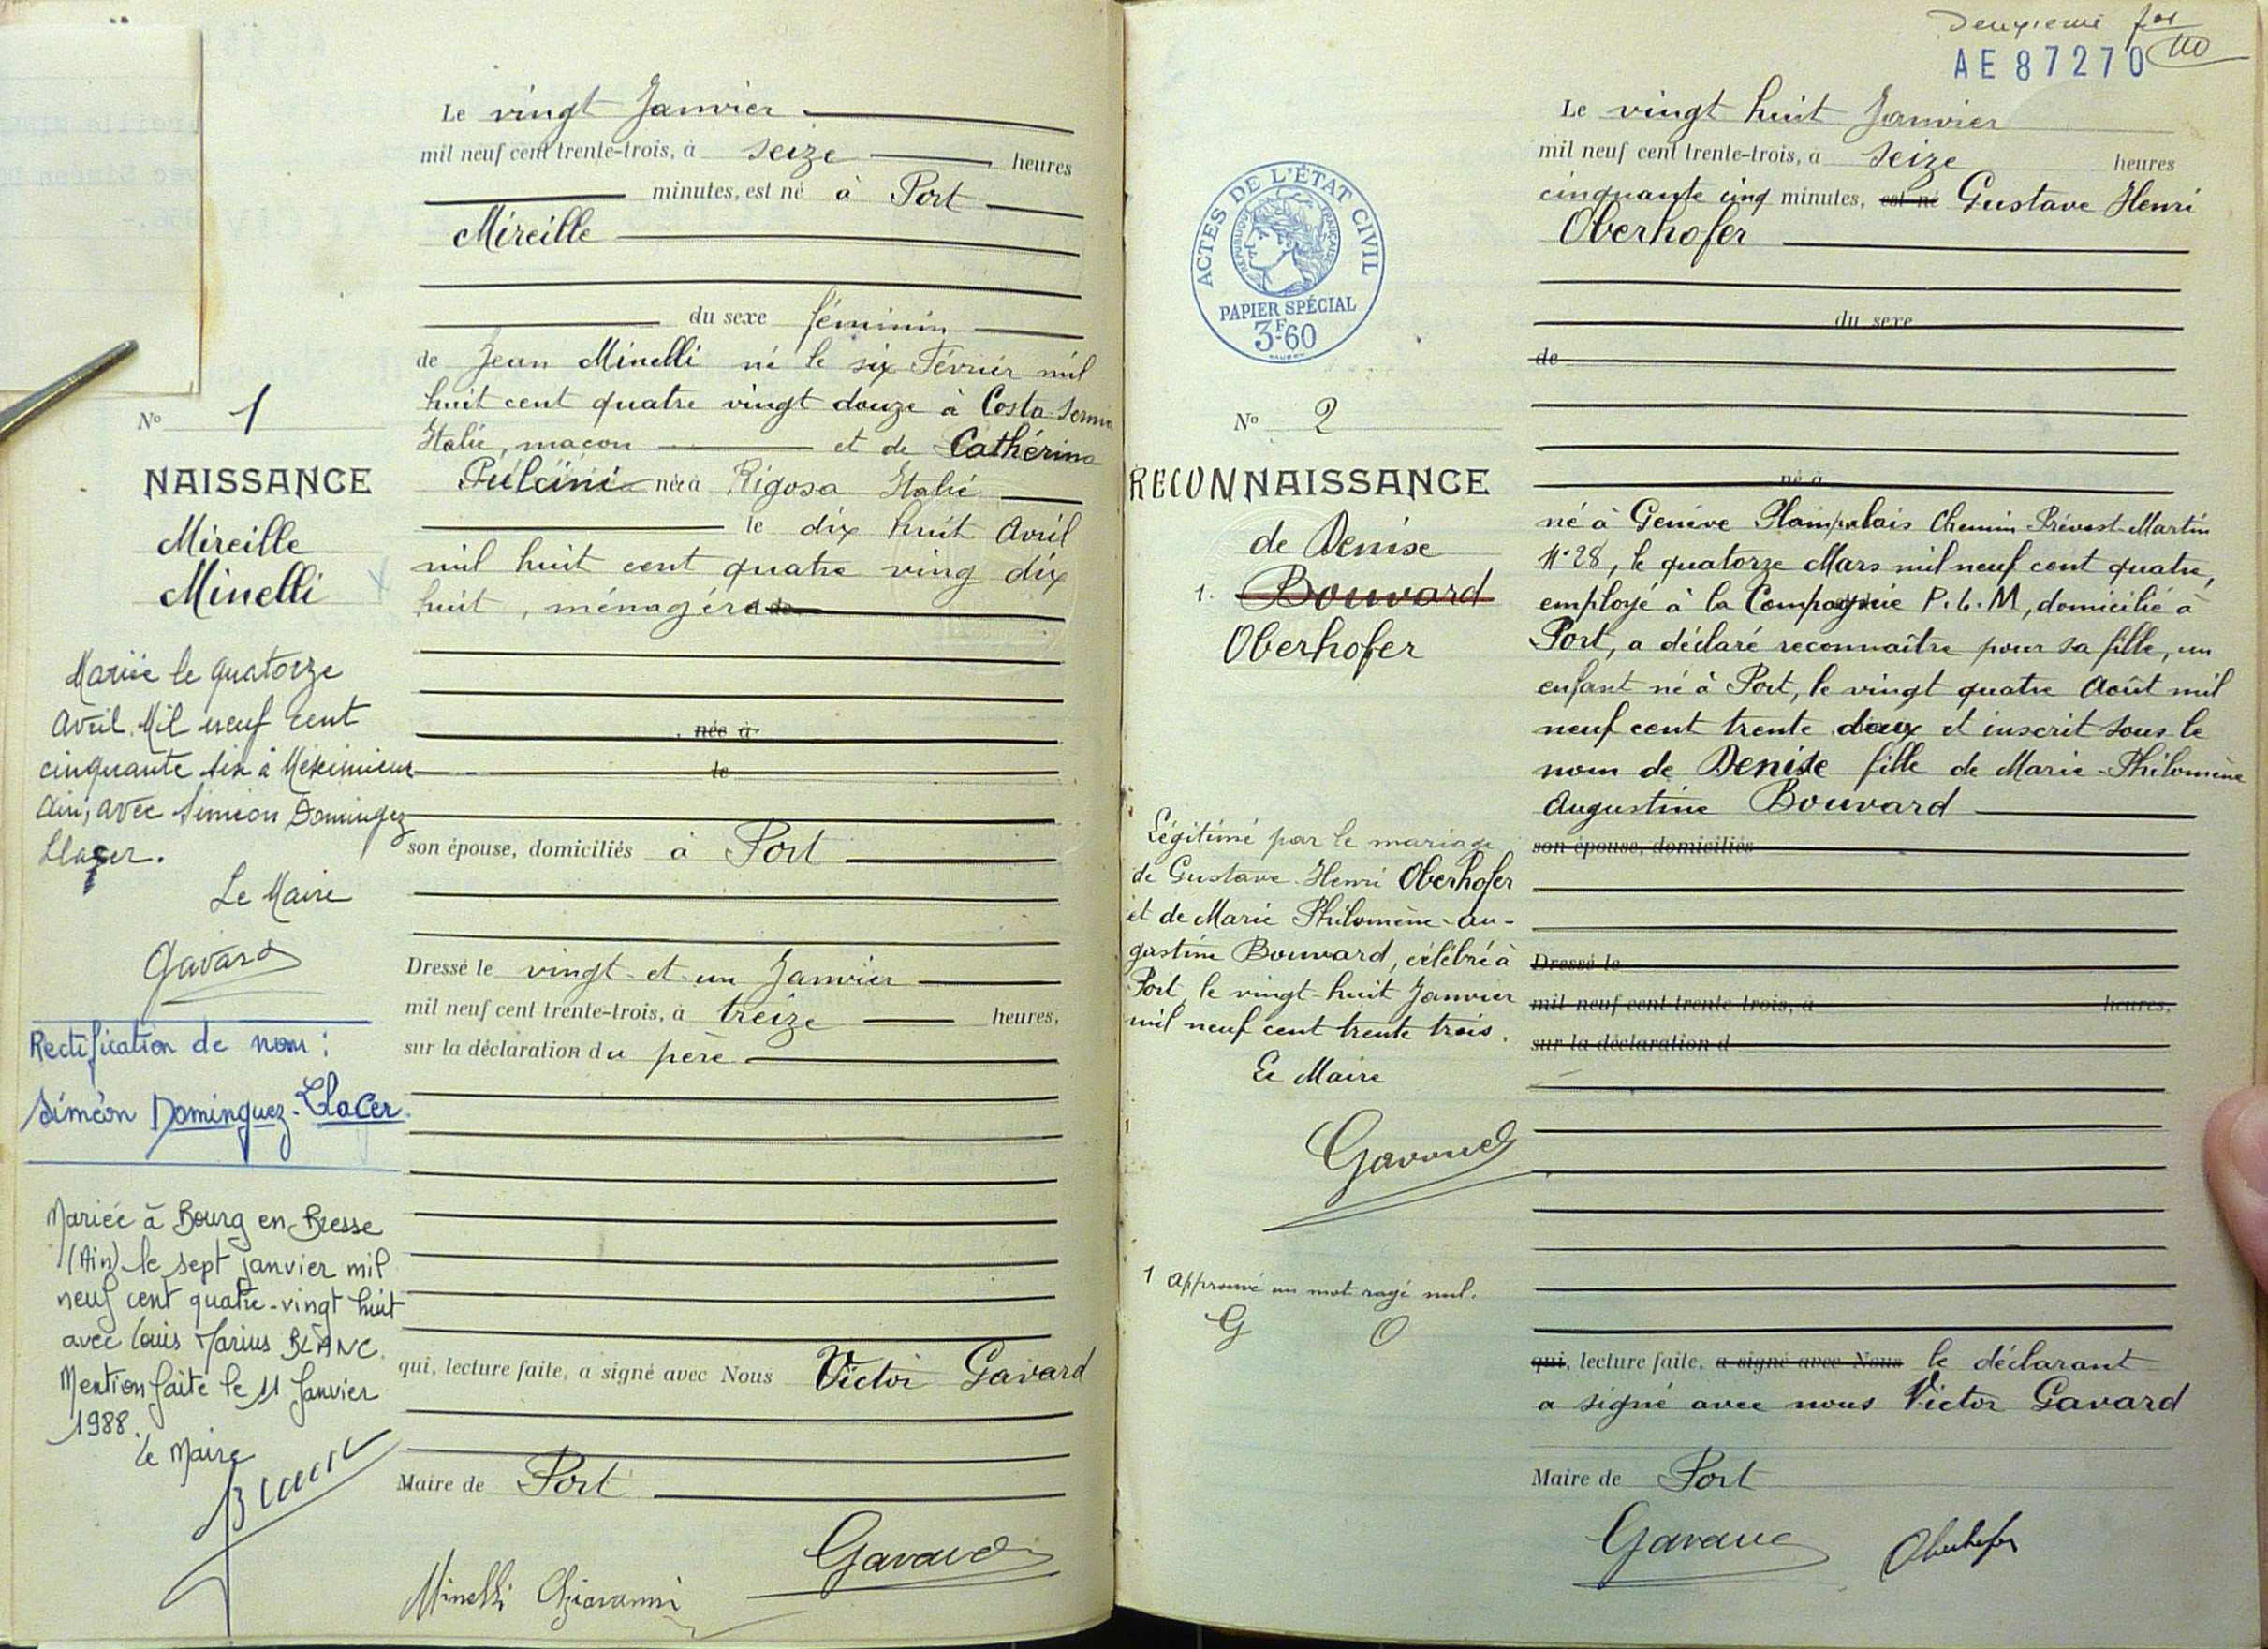 Le vingt Janvier
mil neuf cent trente-trois, à seize heures
minutes, est né à Port
Mireille
du sexe féminin
de Jean Minelli né le six Février mil
huit cent quatre vingt douze à Costa
Italie, maçon et de Cathérina
Pulcini née à Rigosa Italie
le dix huit Avril
mil huit cent quatre ving dix
huit, ménagère de
née à
le
son épouse, domiciliés à Port
Dressé le vingt et un Janvier
mil neuf cent trente-trois, à treize heures,
sur la déclaration du père
qui, lecture faite, a signé avec Nous Victor Gavard
Maire de Port
Gavard
Minelli Giovanni
No 1
NAISSANCE
Mireille
Minelli
Mariée le quatorze
Avril Mil neuf cent
cinquante six à Méximieux
Ain, avec Siméon Dominguez
Llacer.
Le Maire
Gavard
Rectification de nom :
Siméon Dominguez-Llacer.
Mariée à Bourg en-Bresse
(Ain) le sept janvier mil
neuf cent quatre-vingt huit
avec Louis Marius BLANC.
Mention faite le 11 Janvier
1988.
Le Maire
Deuxième
AE 87270
ACTES DE L'ÉTAT CIVIL
RÉPUBLIQUE FRANÇAISE
PAPIER SPÉCIAL
3F60
No 2
RECONNAISSANCE
de Denise
1. Bouvard
Oberhofer
Légitimé par le mariage
de Gustave Henri Oberhofer
et de Marie Philomène-Au-
gustine Bouvard, célébré à
Port le vingt-huit Janvier
mil neuf cent trente trois.
Le Maire
Gavard
1 approuvé un mot rayé nul.
G O
Le vingt huit Janvier
mil neuf cent trente-trois, à seize heures
cinquante cinq minutes, est né Gustave Henri
Oberhofer
du sexe
de
né à
né à Genève Plainpalais Chemin Prévost-Martin
N°28, le quatorze Mars mil neuf cent quatre,
employé à la Compagnie P.L.M, domicilié à
Port, a déclaré reconnaître pour sa fille, un
enfant né à Port, le vingt quatre Août mil
neuf cent trente deux et inscrit sous le
nom de Denise fille de Marie-Philomène
Augustine Bouvard
son épouse, domiciliés
Dressé le
mil neuf cent trente-trois, à heures,
sur la déclaration d
qui, lecture faite, a signé avec Nous le déclarant
a signé avec nous Victor Gavard
Maire de Port
Gavard Oberhofer